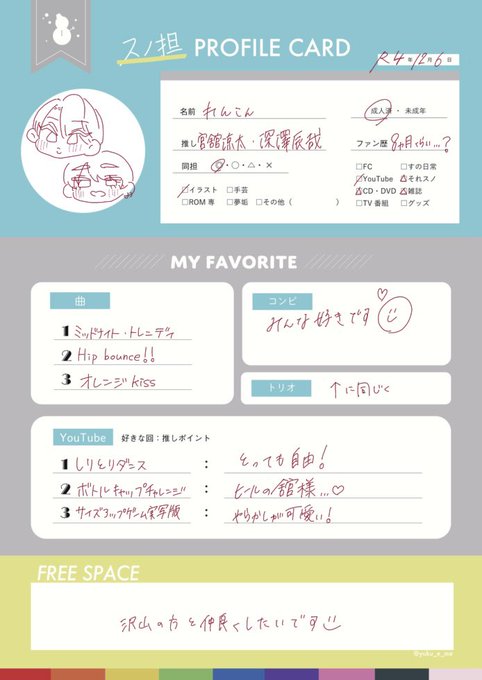 スノ担 PROFILE CARD
R4年12月6日
名前 れんこん 成人済・未成年
推し 宮舘涼太・深澤辰哉 ファン歴 8ヶ月くらい…?
同担 ◎・○・△・×
□FC □すの日常
□イラスト □手芸 □YouTube □それスノ
□ROM専 □夢垢 □その他( ) □CD・DVD □雑誌
□TV番組 □グッズ
MY FAVORITE
曲
1 ミッドナイト・トレンディ
2 Hip bounce!!
3 オレンジkiss
コンビ
みんな好きです
トリオ ↑に同じく
YouTube 好きな回:推しポイント
1 しりとりダンス : とっても自由!
2 ボトルキャップチャレンジ : ヒールの舘様…♡
3 サイズアップゲーム実写版 : やらかしが可愛い!
FREE SPACE
沢山の方と仲良くしたいです
@yuku_e_me